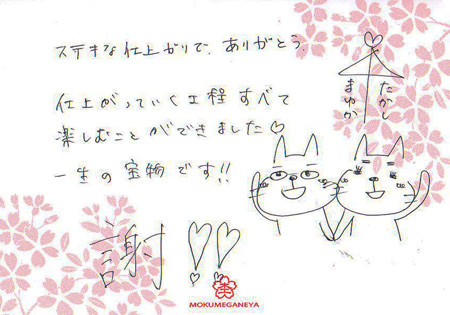 ステキな仕上がりで、ありがとう。
仕上がっていく工程すべて
楽しむことができました♡
一生の宝物です!!
謝!!
たかし
まゆか
MOKUMEGANEYA